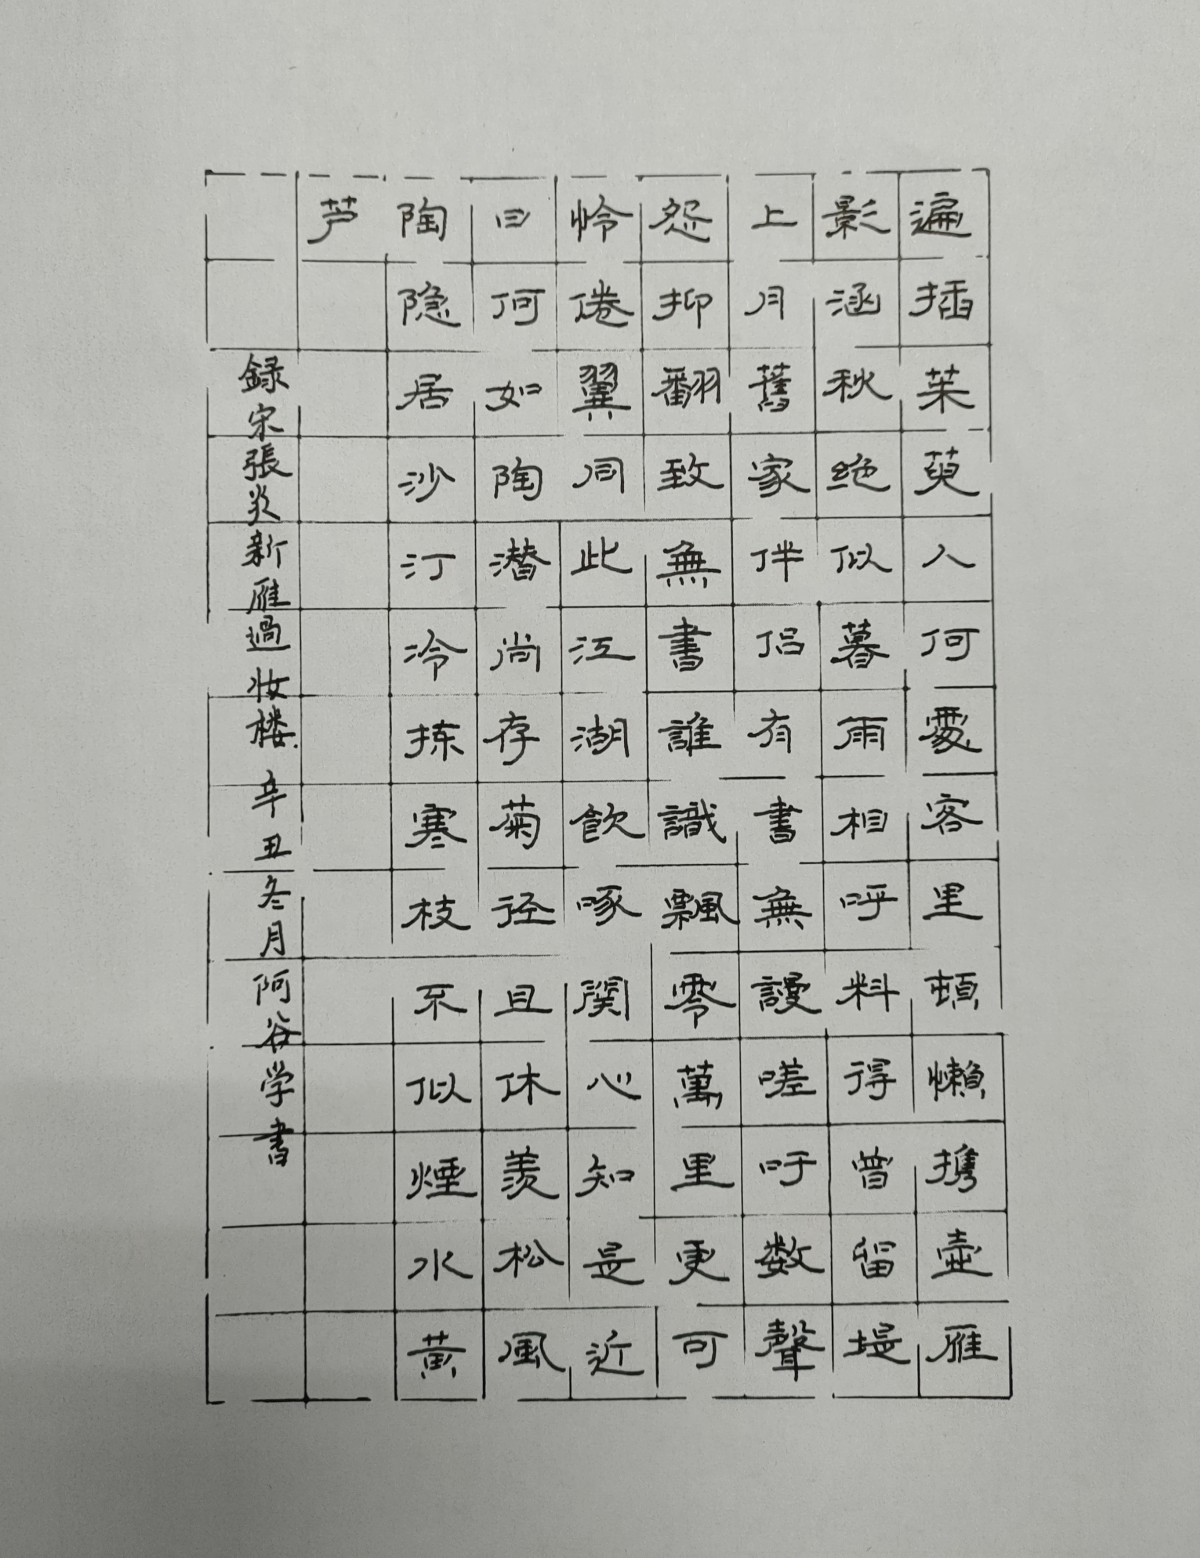 遍插茱萸人何處客里頓懶攜壺雁
影涵秋绝似暮雨相呼料得曾留堤
上月舊家伴侣有書無謾嗟吁数聲
怨抑翻致無書誰識飄零萬里更可
怜倦翼同此江湖飲啄関心知是近
日何如陶潜尚存菊径且休羨松風
陶隐居沙汀冷拣寒枝不似煙水黄
芦
録宋張炎新雁過妆楼 辛丑冬月阿谷学書